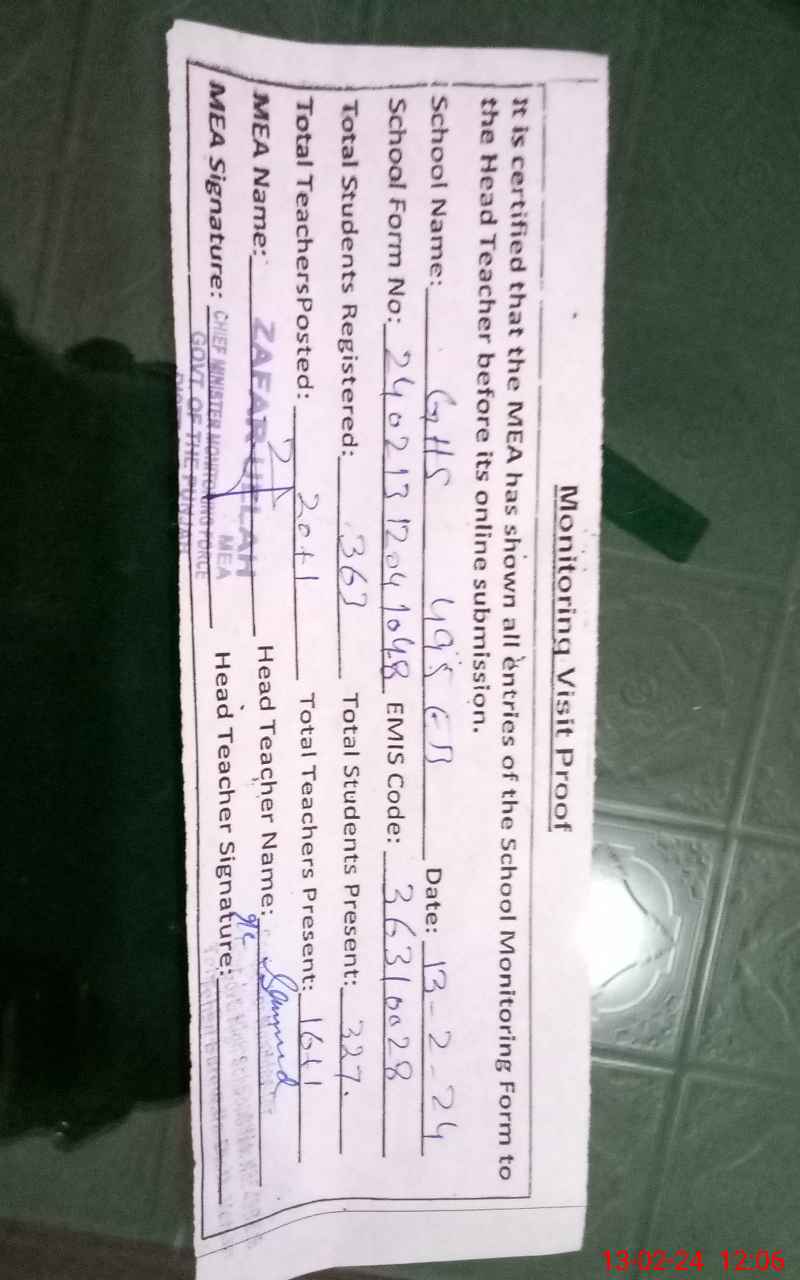 Monitoring Visit Proof
It is certified that the MEA has shown all entries of the School Monitoring Form to
the Head Teacher before its online submission.
School Name: GHS 495 GB Date: 13-2-24
School Form No: 24021312041048 EMIS Code: 36310028
Total Students Registered: 363 Total Students Present: 327.
Total TeachersPosted: 20+1 Total Teachers Present: 16+1
MEA Name: ZAFAR ULLAH Head Teacher Name:
MEA
MEA Signature: CHIEF MINISTER MONITORING FORCE Head Teacher Signature:
GOVT. OF THE PUNJAB
13-02-24 12:06